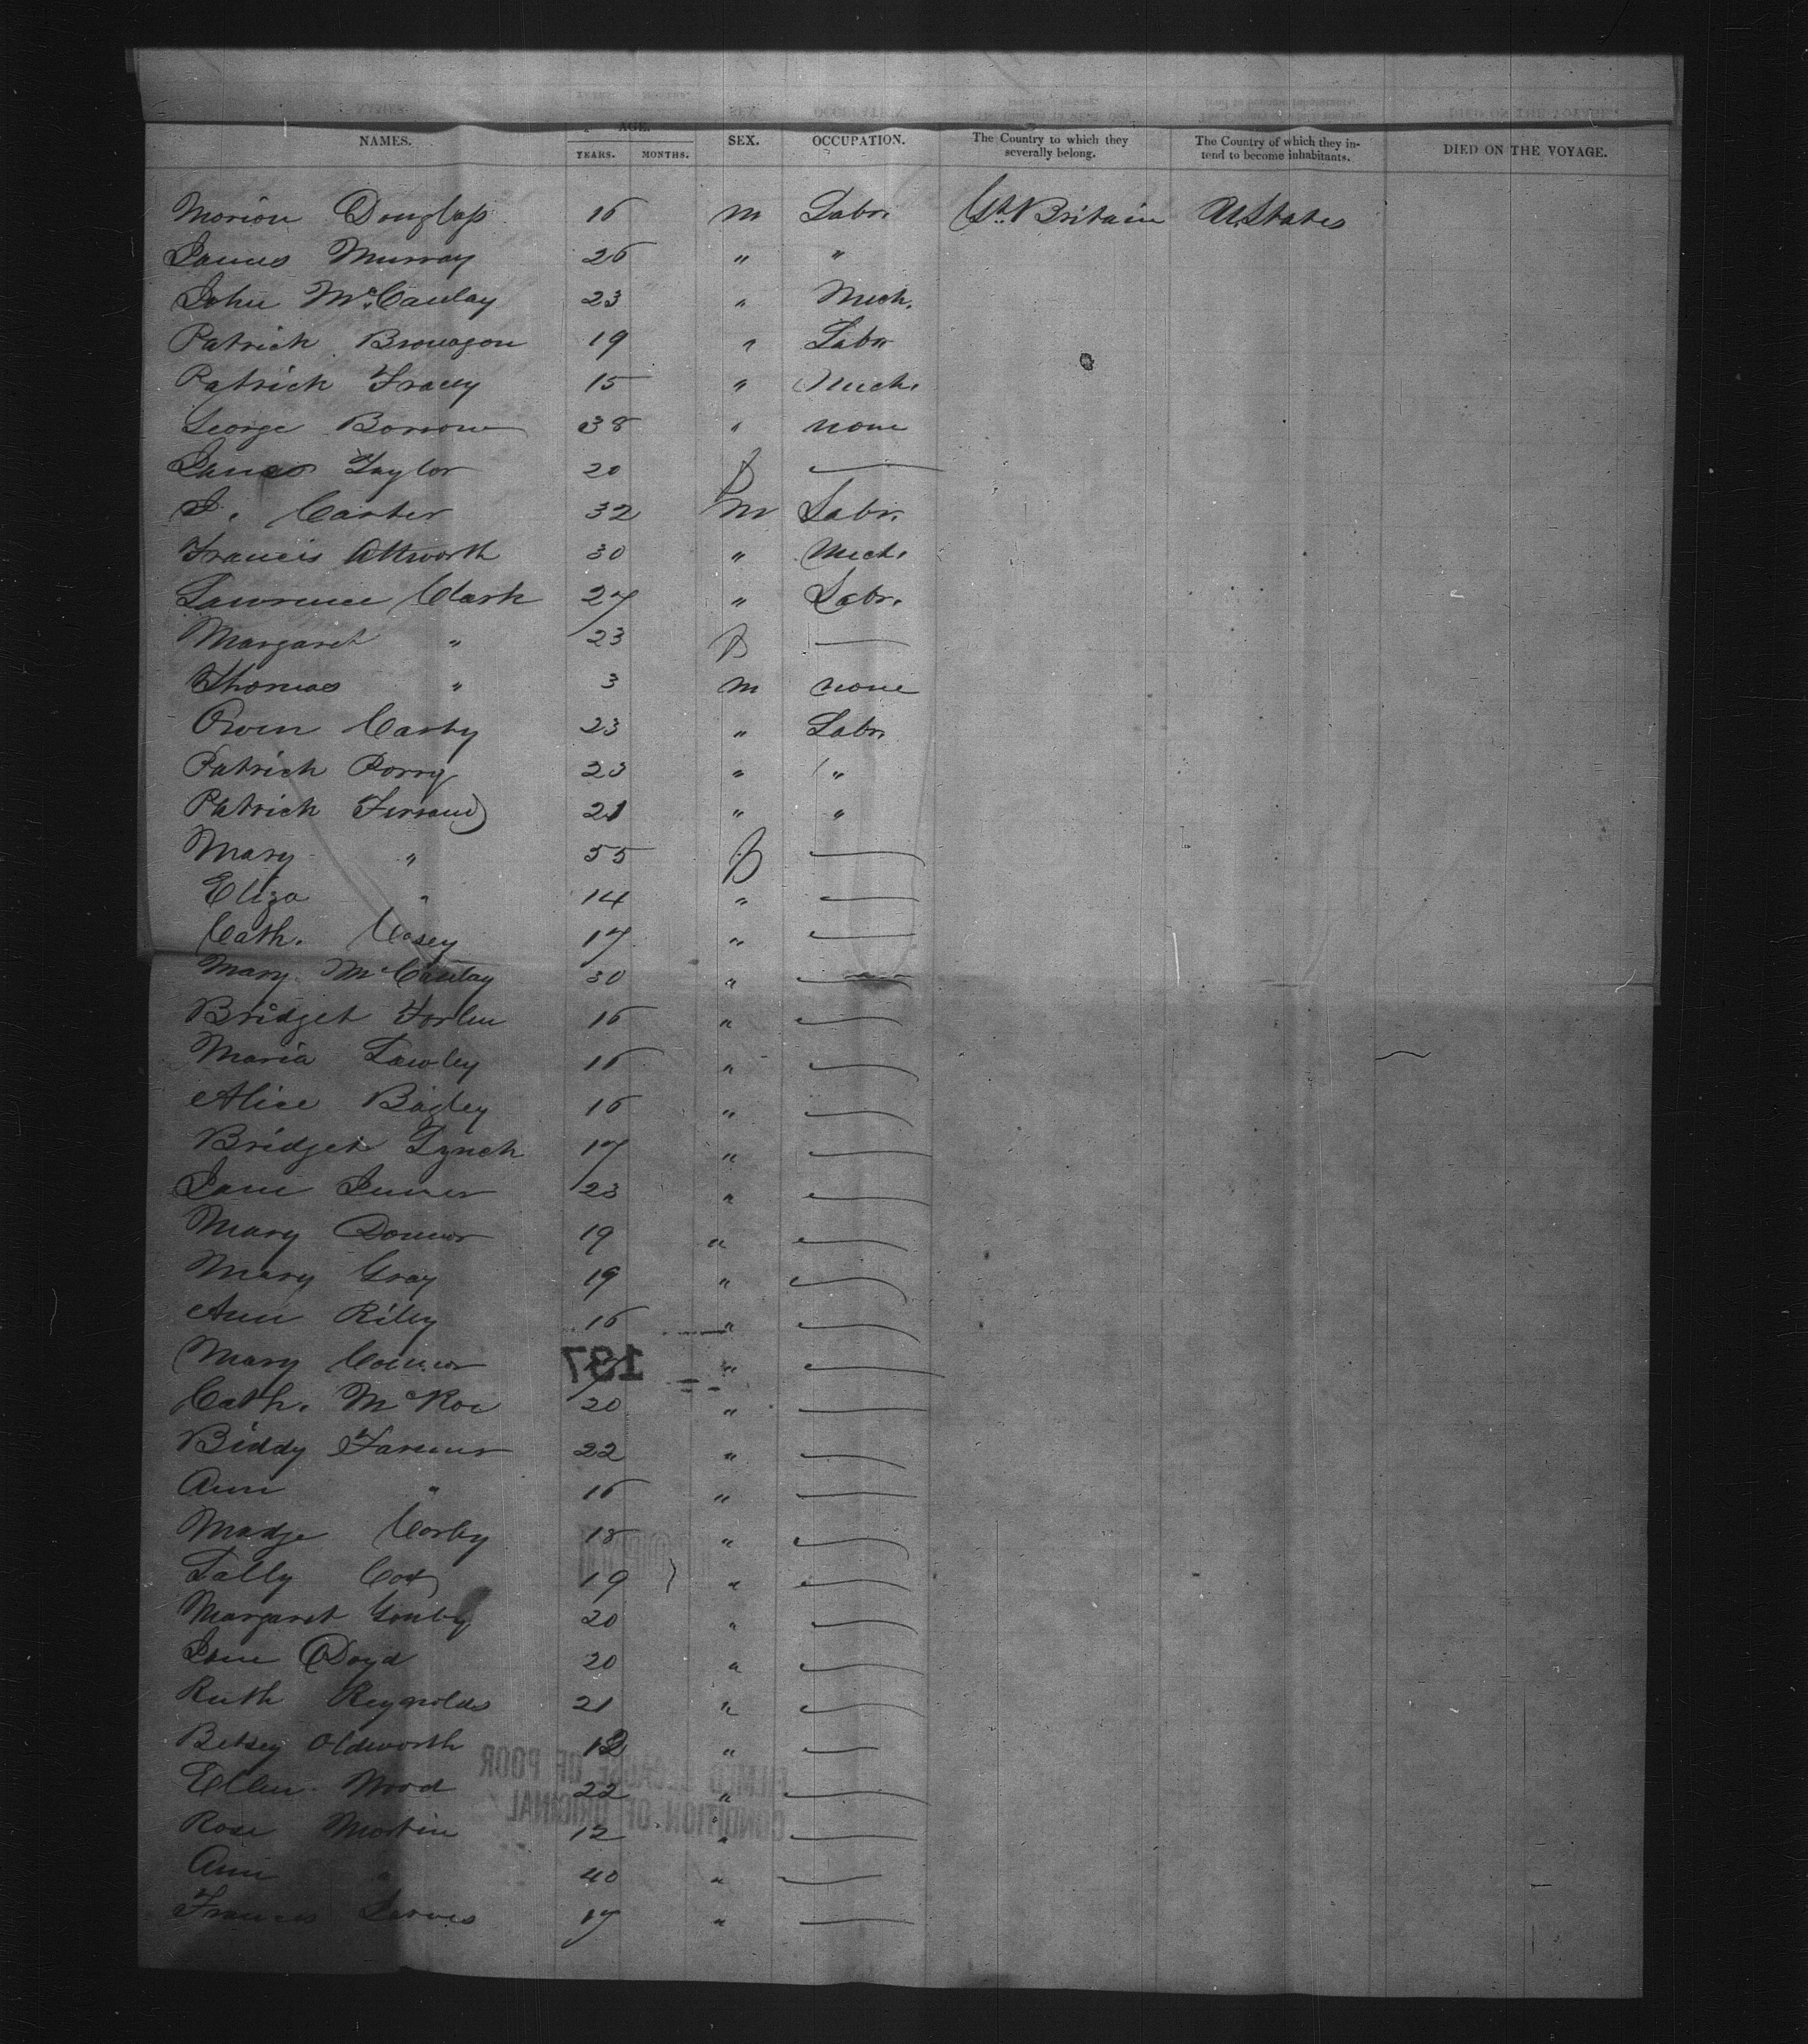 NAMES. AGE. SEX. OCCUPATION. The Country to which they severally belong. The Country of which they intend to become inhabitants. DIED ON THE VOYAGE.
YEARS. MONTHS.
Morion Douglass 16 m Labr. Gt. Britain U. States
James Murray 26 " "
John McCaulay 23 " Mech.
Patrick Bronagon 19 " Labr
Patrick Tracey 15 " Mech.
George Borrow 38 " none
James Taylor 20 f —
J. Carter 32 m Labr.
Francis Attworth 30 " Mech.
Lawrence Clark 27 " Labr.
Margaret " 23 f —
Thomas " 3 m none
Owen Carty 23 " Labr.
Patrick Rorry 23 " "
Patrick 21 " "
Mary " 55 f —
Eliza " 14 " —
Cath. Casey 17 " —
Mary McCaulay 30 " —
Bridget Forlen 16 " —
Maria Lawley 16 " —
Alice Bagley 16 " —
Bridget Lynch 17 " —
Jane 23 " —
Mary Connor 19 " —
Mary Gray 19 " —
Ann Riley 16 " —
Mary Connor 17 " —
197
Cath. McRoe 20 " —
Biddy Farmer 22 " —
Ann " 16 " —
Madge Corby 18 " —
Sally Cox 19 " —
Margaret 20 " —
Jane Boyd 20 " —
Ruth Reynolds 21 " —
Betsey Oldworth 12 " —
FILMED BECAUSE OF POOR
Ellen Wood 22 " —
CONDITION OF ORIGINAL
Rose Martin 12 " —
Ann " 40 " —
Francis Jarves 17 " —